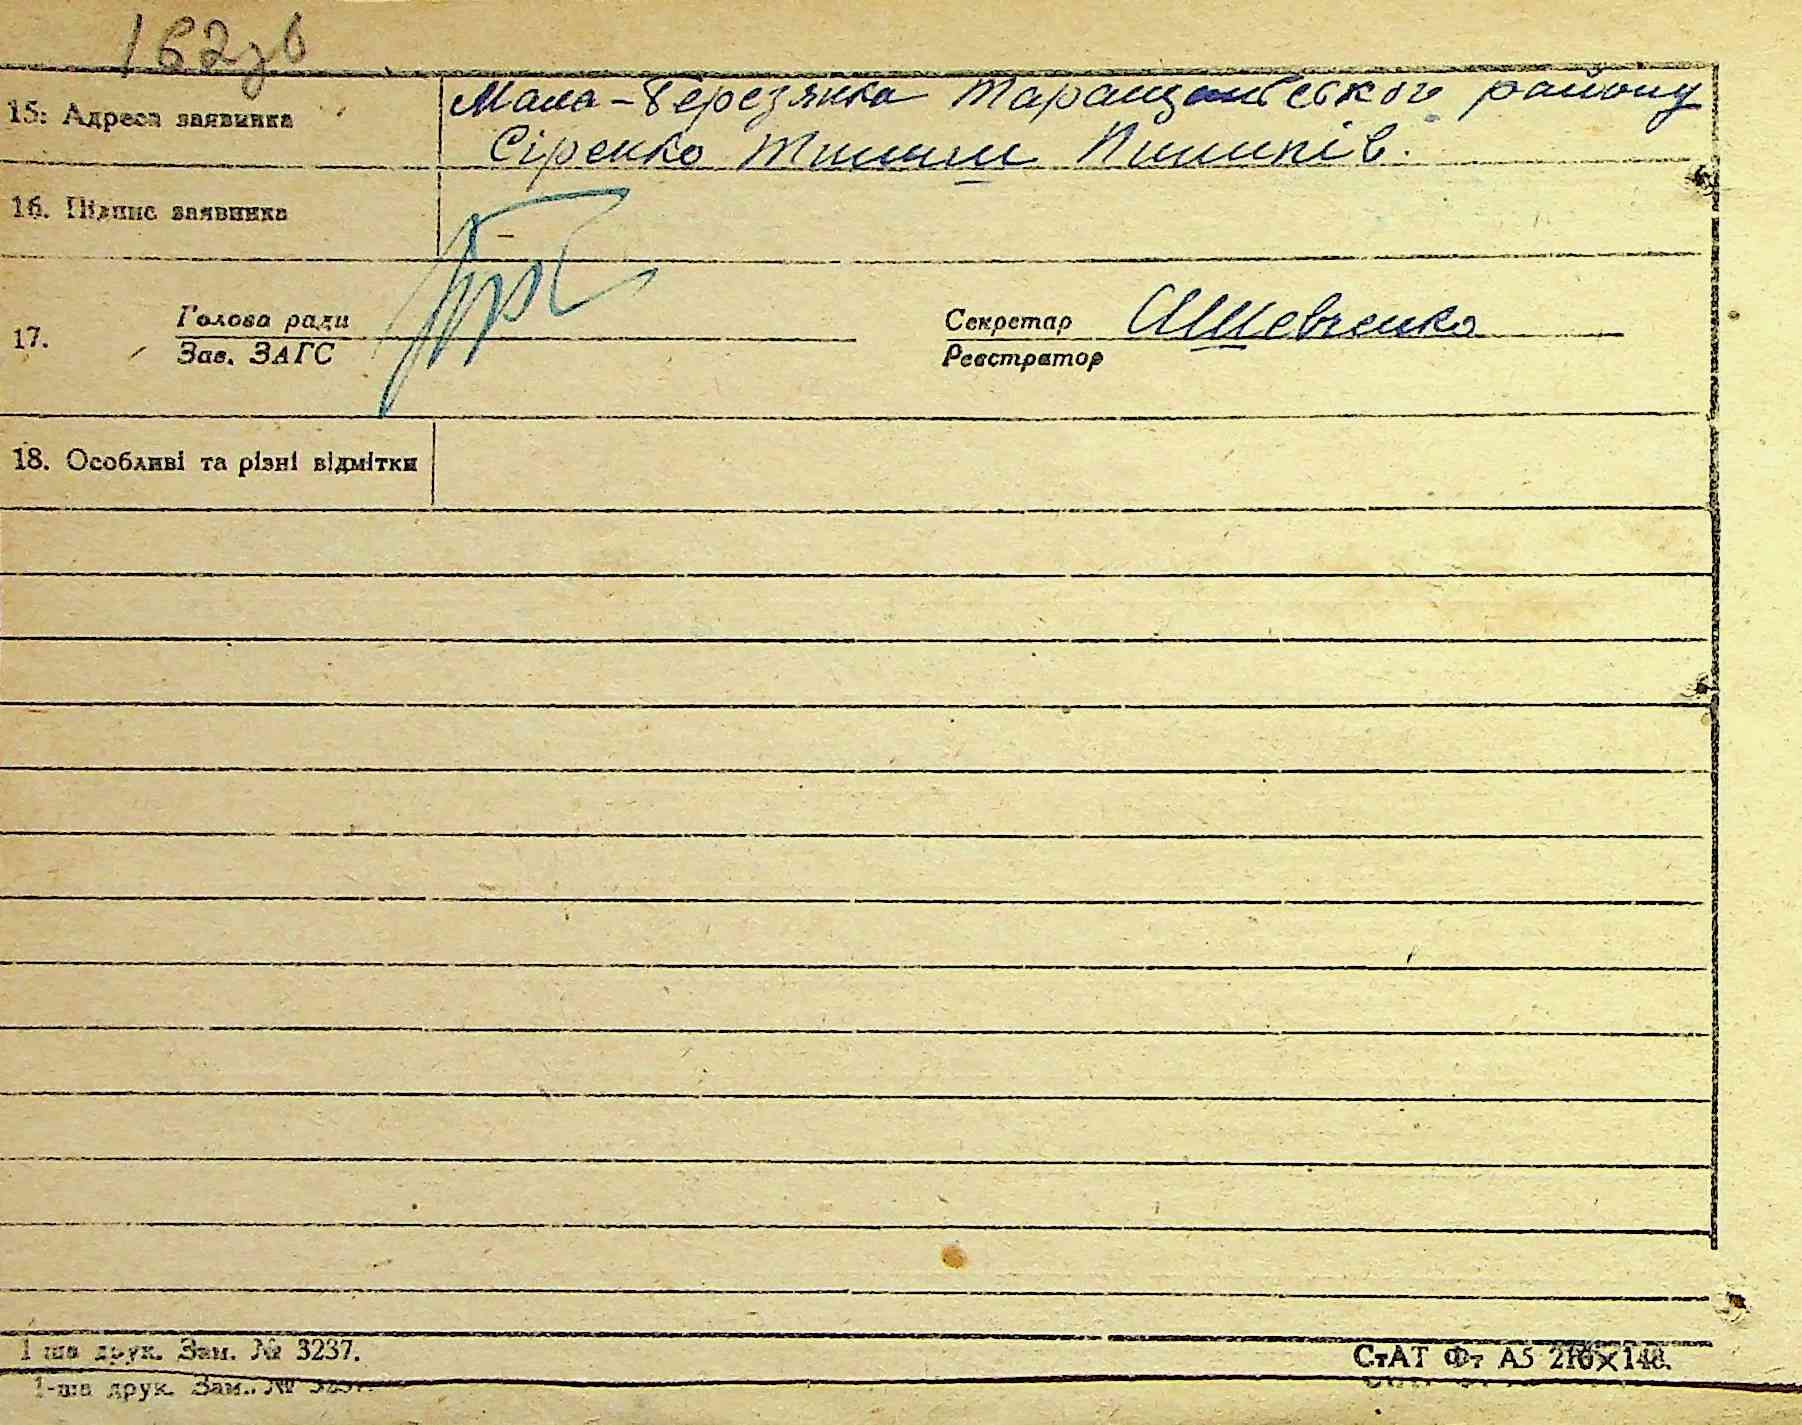 162зв
15. Адреса заявника
Мала-Березянка Таращанського району
Сіренко Тишиш Пилипів.
16. Підпис заявника
17.
Голова ради
Зав. ЗАГС
Секретар
Реєстратор
Шевченко
18. Особливі та різні відмітки
1 ша друк. Зам. № 3237.
СтАТ Фт А5 210×148.
1-ша друк. Зам. № 3237.